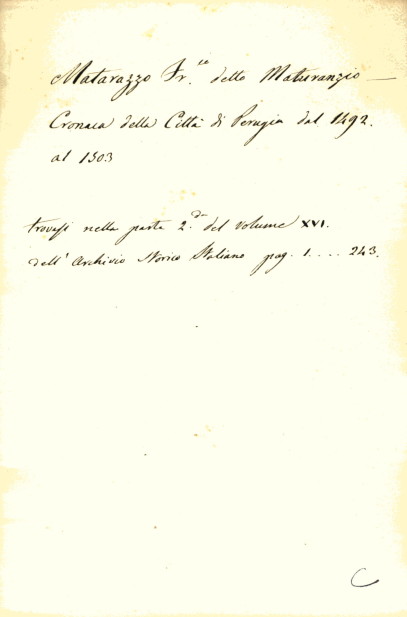 Matarazzo Fr.co detto Maturanzio —
Cronaca della Città di Perugia dal 1492.
al 1503
trovasi nella parte 2.da del volume XVI.
dell' Archivio Storico Italiano pag. 1 .... 243.
C